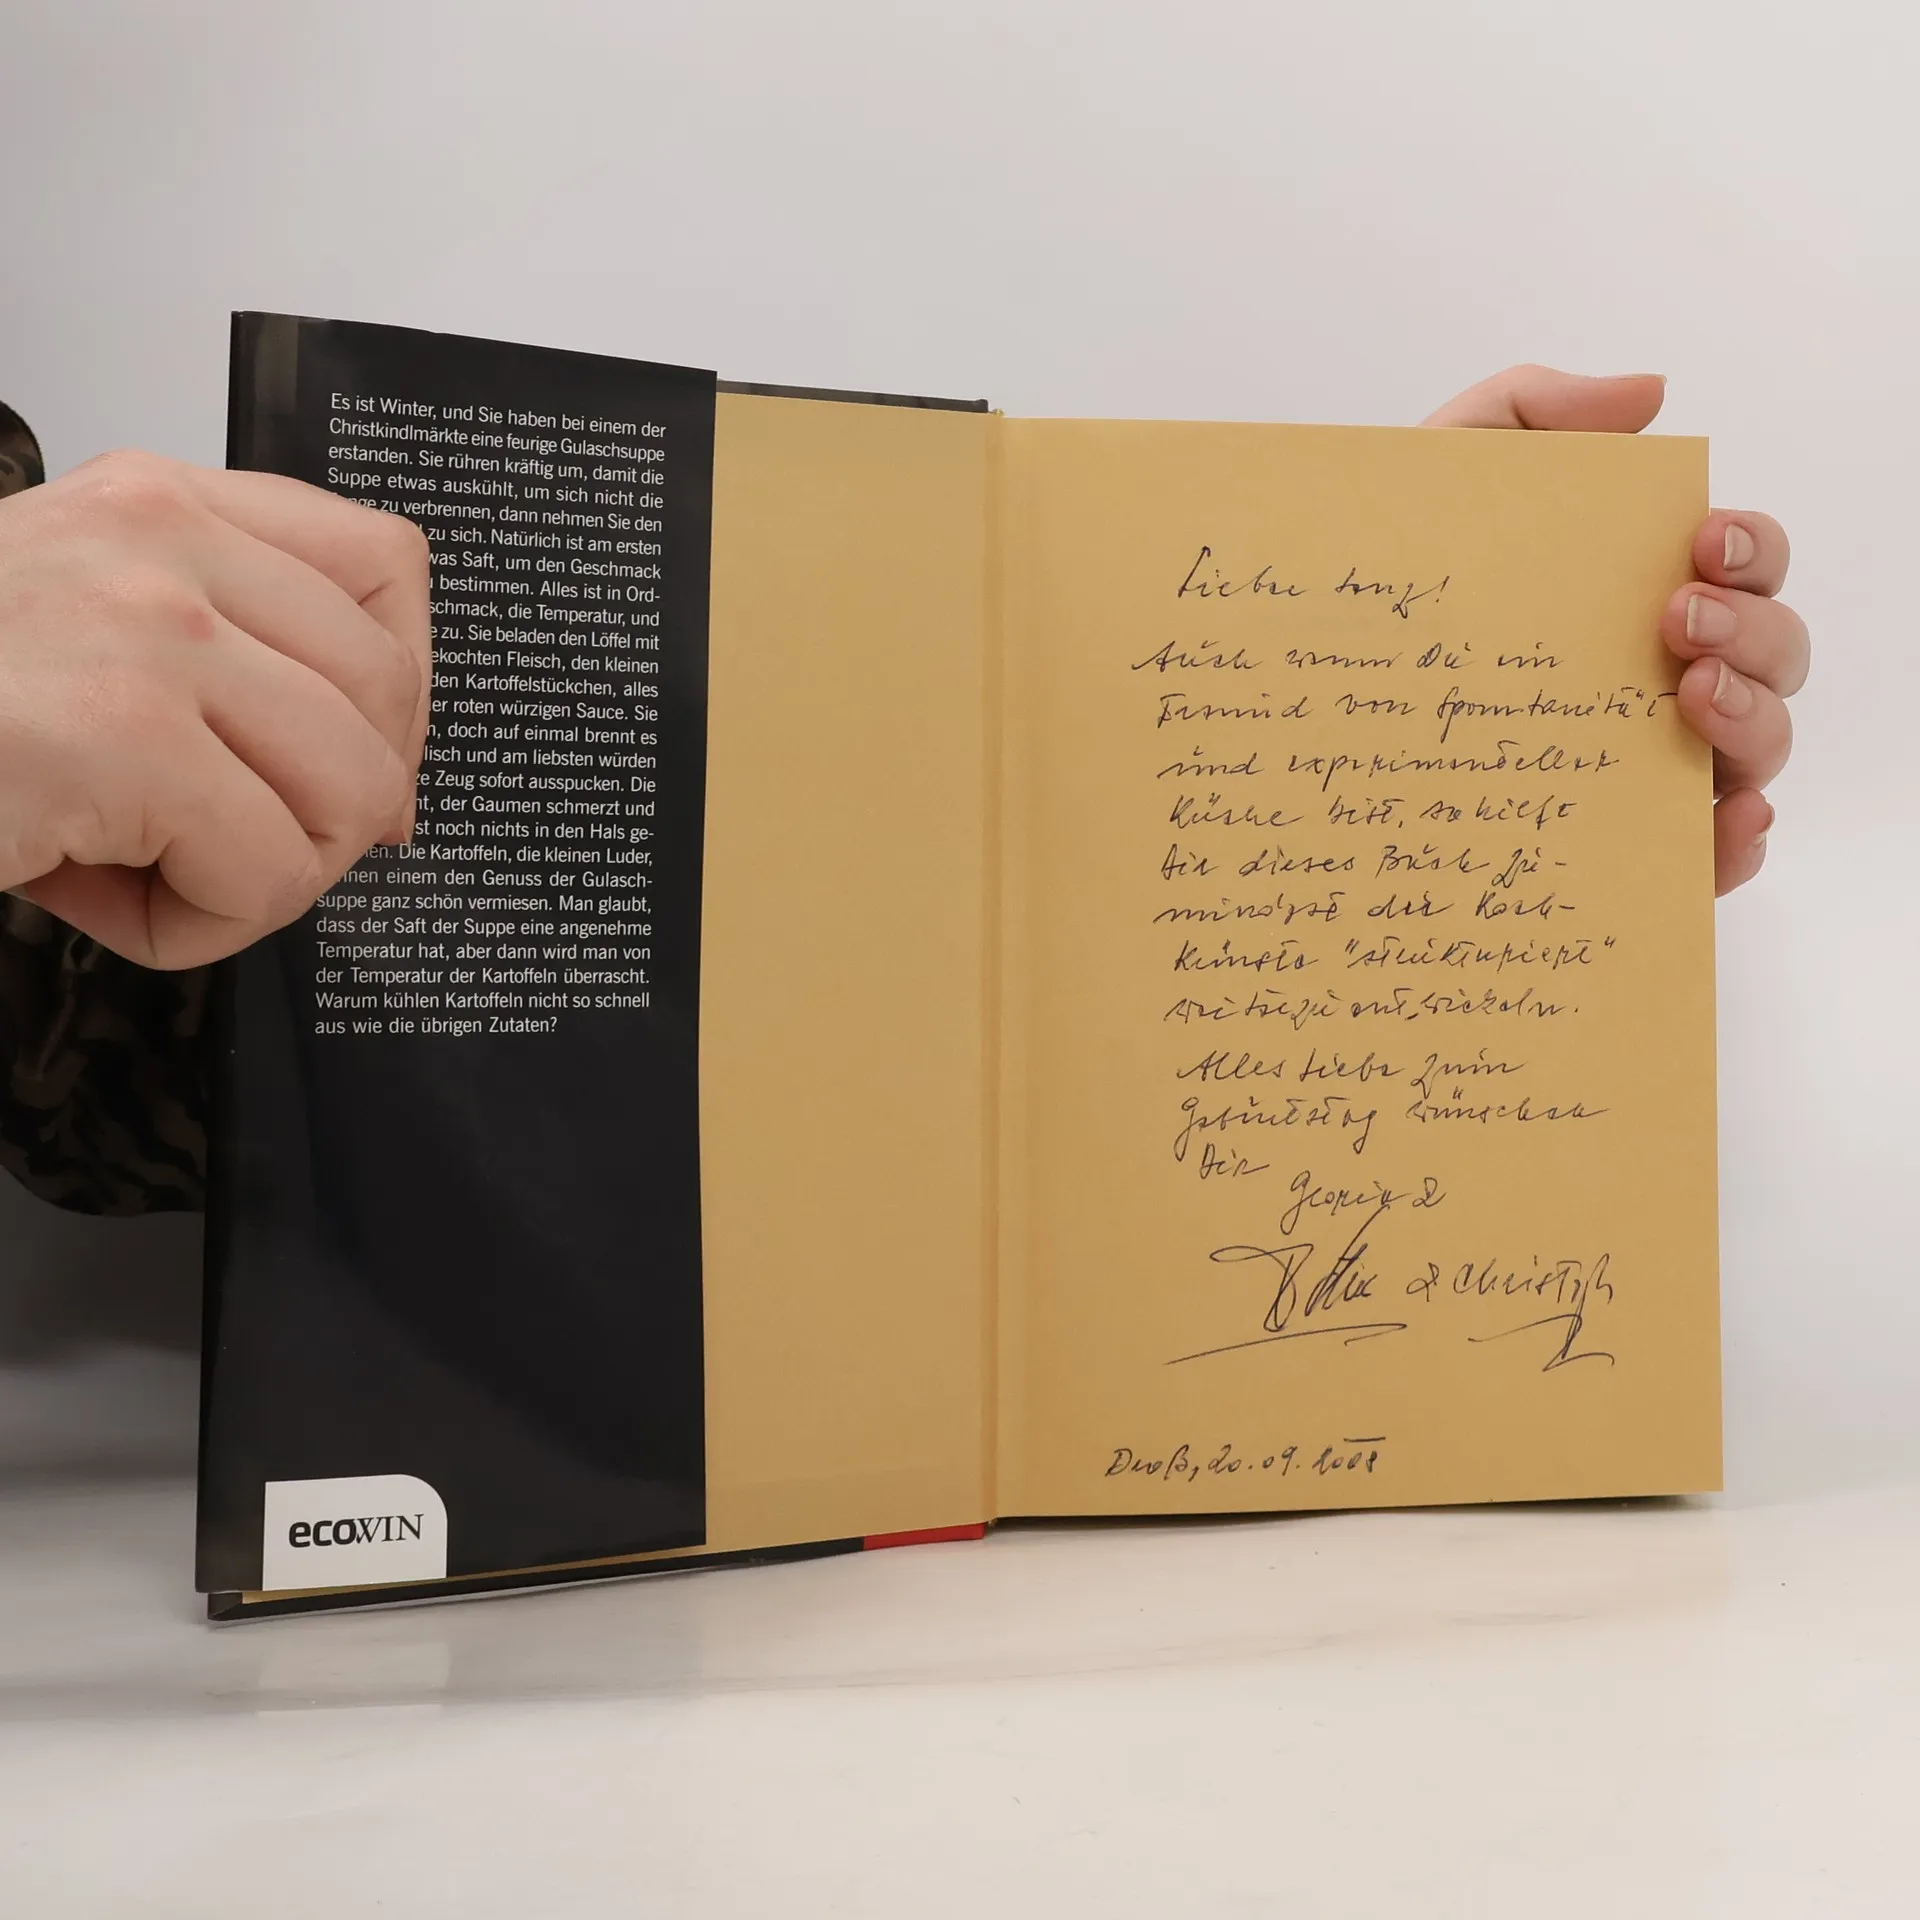 Es ist Winter, und Sie haben bei einem der
Christkindlmärkte eine feurige Gulaschsuppe
erstanden. Sie rühren kräftig um, damit die
Suppe etwas auskühlt, um sich nicht die
zu verbrennen, dann nehmen Sie den
zu sich. Natürlich ist am ersten
was Saft, um den Geschmack
bestimmen. Alles ist in Ord-
schmack, die Temperatur, und
e zu. Sie beladen den Löffel mit
ekochten Fleisch, den kleinen
den Kartoffelstückchen, alles
er roten würzigen Sauce. Sie
n, doch auf einmal brennt es
lisch und am liebsten würden
ze Zeug sofort ausspucken. Die
nt, der Gaumen schmerzt und
st noch nichts in den Hals ge-
en. Die Kartoffeln, die kleinen Luder,
nnen einem den Genuss der Gulasch-
suppe ganz schön vermiesen. Man glaubt,
dass der Saft der Suppe eine angenehme
Temperatur hat, aber dann wird man von
der Temperatur der Kartoffeln überrascht.
Warum kühlen Kartoffeln nicht so schnell
aus wie die übrigen Zutaten?
ecoWIN
Lieber
Auch wenn Du ein
Freund von Spontanität
und experimenteller
Küche bist, so hilft
Dir dieses Buch zu-
mindest die Koch-
künste "strukturiert"
weiterzuentwickeln.
Alles Liebe zum
Geburtstag wünschen
Dir
&
& Christoph
Droß, 20.09.2008